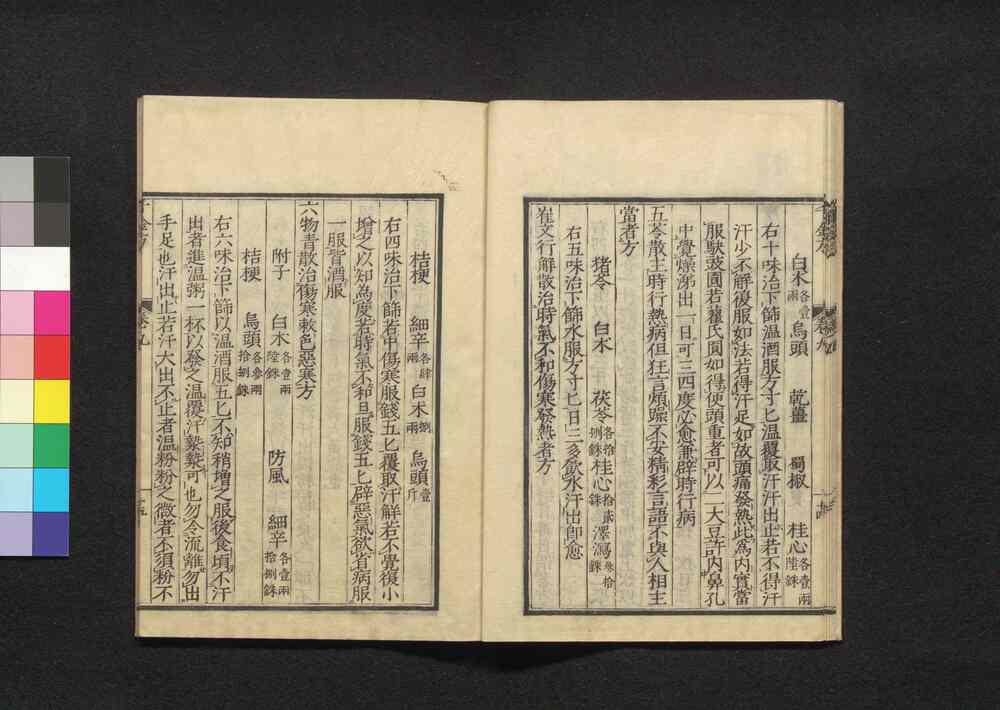 白术各壹兩 烏頭 乾薑 蜀椒 桂心各壹兩陸銖
右十味治下篩温酒服方寸匕温覆取汗汗出止若不得汗
汗少不解復服如法若得汗足如故頭痛發熱此爲内實當
服駃豉圓若㽉氏圓如得便頭重者可以一大豆許内鼻孔
中覺燥涕出一日可三四度必愈兼辟時行病
五苓散主時行熱病但狂言煩躁不安精彩言語不與人相主
當者方
猪苓 白术 茯苓各拾捌銖桂心拾貳銖澤瀉叁拾銖
右五味治下篩水服方寸匕日三多飲水汗出即愈
崔文行解散治時氣不和傷寒發熱者方
桔梗 細辛各肆兩 白术捌兩 烏頭壹斤
右四味治下篩若中傷寒服錢五匕覆取汗解若不覺復小
增之以知爲度若時氣不和旦服錢五匕辟惡氣欲省病服
一服皆酒服
六物青散治傷寒敕色惡寒方
附子 白术各壹兩陸銖 防風 細辛各壹兩拾捌銖
桔梗 烏頭各叁兩拾捌銖
右六味治下篩以温酒服五匕不知稍增之服後食頃不汗
出者進温粥一杯以發之温覆汗漐漐可也勿令流離勿出
手足也汗出止若汗大出不止者温粉粉之微者不須粉不